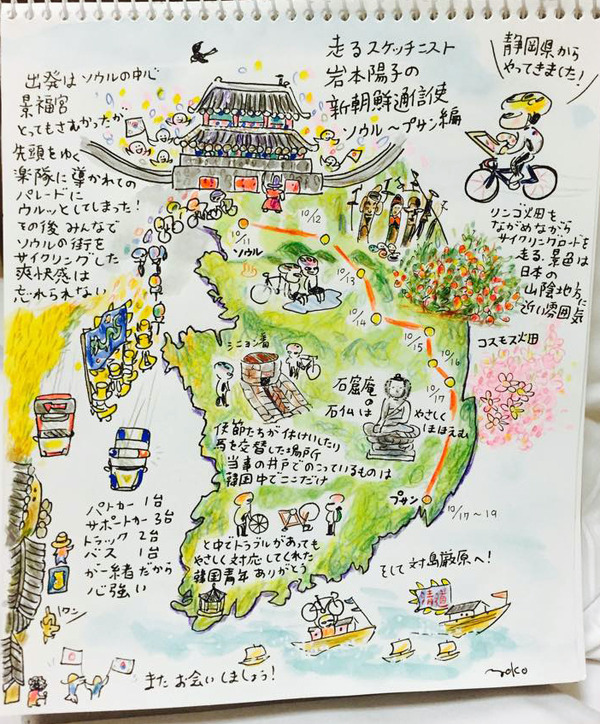 走るスケッチニスト
岩本陽子の
新朝鮮通信使
ソウル〜プサン編
静岡県から
やってきました!
出発はソウルの中心
景福宮
とってもさむかったが
先頭をゆく
楽隊に導かれての
パレードに
ウルッとしてしまった!
その後みんなで
ソウルの街を
サイクリングした
爽快感は
忘れられない
10/11
ソウル
10/12
10/13
10/14
10/15
10/16
10/17
プサン
10/17〜19
リンゴ畑を
ながめながら
サイクリングロードを
走る。景色は
日本の
山陰地方に
近い雰囲気
コスモス畑
石窟庵
の
石仏は
やさしく
ほほえむ
使節たちが休けいしたり
馬を交替した場所
当事の井戸でのこっているものは
韓国中でここだけ
パトカー 1台
サポートカー 3台
トラック 2台
バス 1台
が一緒だから
心強い
と中でトラブルがあっても
やさしく対応してくれた
韓国青年ありがとう
そして対島厳原へ!
清道
ワン
また お会いしましょう!
yoko